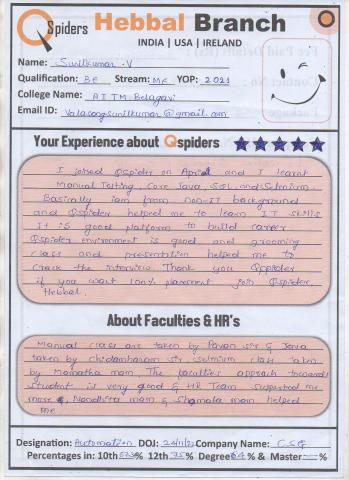 QSpiders Hebbal Branch
INDIA | USA | IRELAND
Name: Sunilkumar.V
Qualification: BE Stream: ME YOP: 2021
College Name: AITM Belagavi
Email ID: @gmail.com
Your Experience about Qspiders
I joined Qspider on April and I learnt
Manual Testing, Core Java, SQL and Selenium.
Basically iam from non-IT background
and Qspider helped me to learn IT skills
It is good platform to build career
Qspider environment is good and grooming
class and presentation helped me to
Crack the interview. Thank you Qspider
if you want 100% placement join Qspider,
Hebbal.
About Faculties & HR's
Manual class are taken by Pavan sir & Java
taken by chidambaram sir selenium class taken
by Mamatha mam. The faculties approach towards
student is very good & HR Team supported me
more, Nandhira mam & Shamala mam helped
me
Designation: Automation DOJ: Company Name: CSG
Percentages in: 10th % 12th 75% Degree 64% & Master %